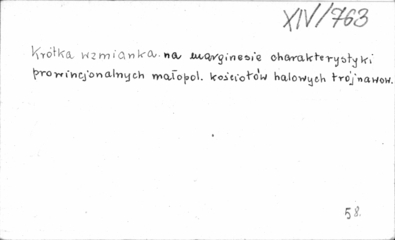 XIV/763
Krótka wzmianka na marginesie charakterystyki
prowincjonalnych małopol. kościołów halowych trójnawow.
58.